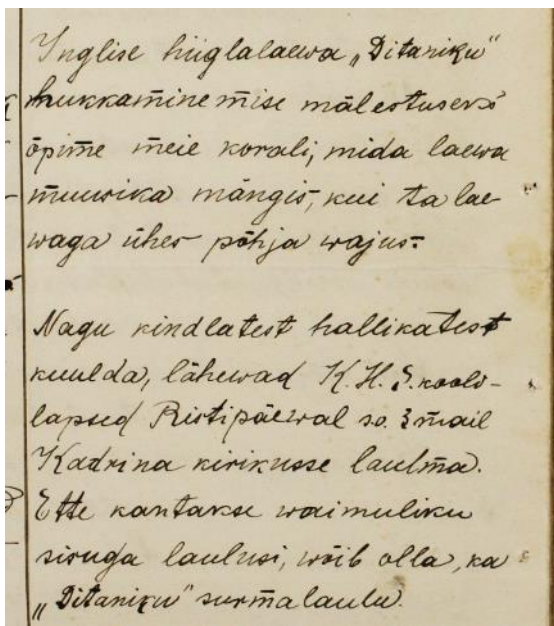 Inglise hiiglalaewa „Ditaniku“
hukkaminemise mälestuseks
õpime meie korali, mida laewa
muusika mängis, kui ta lae-
waga ühes põhja wajus.
Nagu kindlatest hallikatest
kuulda, lähewad K. H. S. kooli-
lapsed Ristipäewal s.o. 3 mail
Kadrina kirikusse laulma.
Ette kantakse waimuliku
sisuga laulusi, wõib olla, ka
„Ditaniku“ surmalaulu.